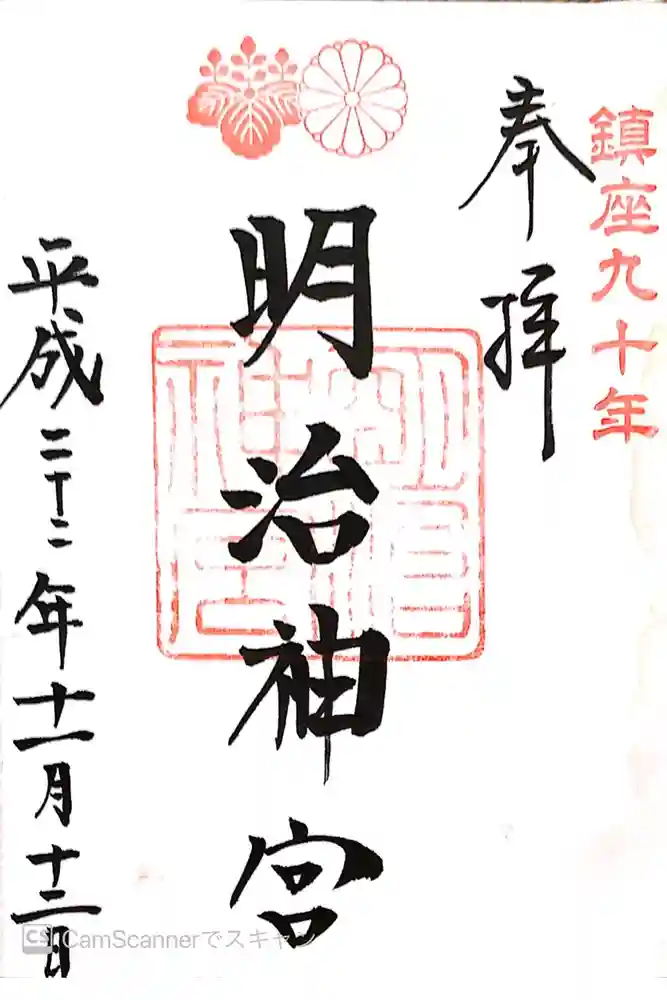 鎮座九十年
奉拝
明治神宮
平成二十二年十一月十三日
CS CamScannerでスキャン